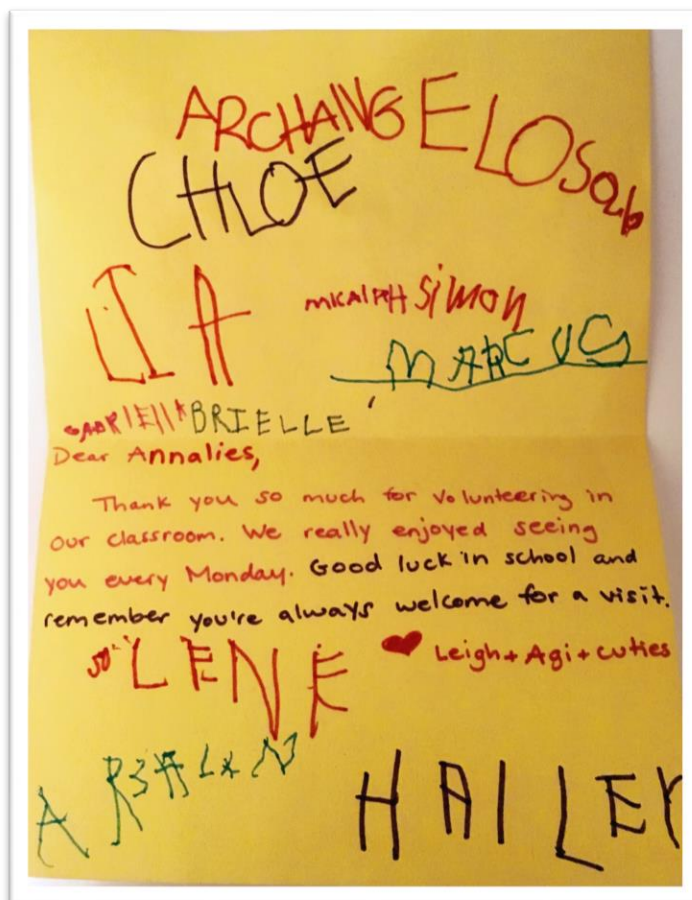 ARCHANGELOS
CHLOE
LIA
simon
MARCUS
BRIELLE
Dear Annalies,
Thank you so much for volunteering in
our classroom. We really enjoyed seeing
you every Monday. Good luck in school and
remember you're always welcome for a visit.
❤ Leigh + Agi + cuties
HAILEY